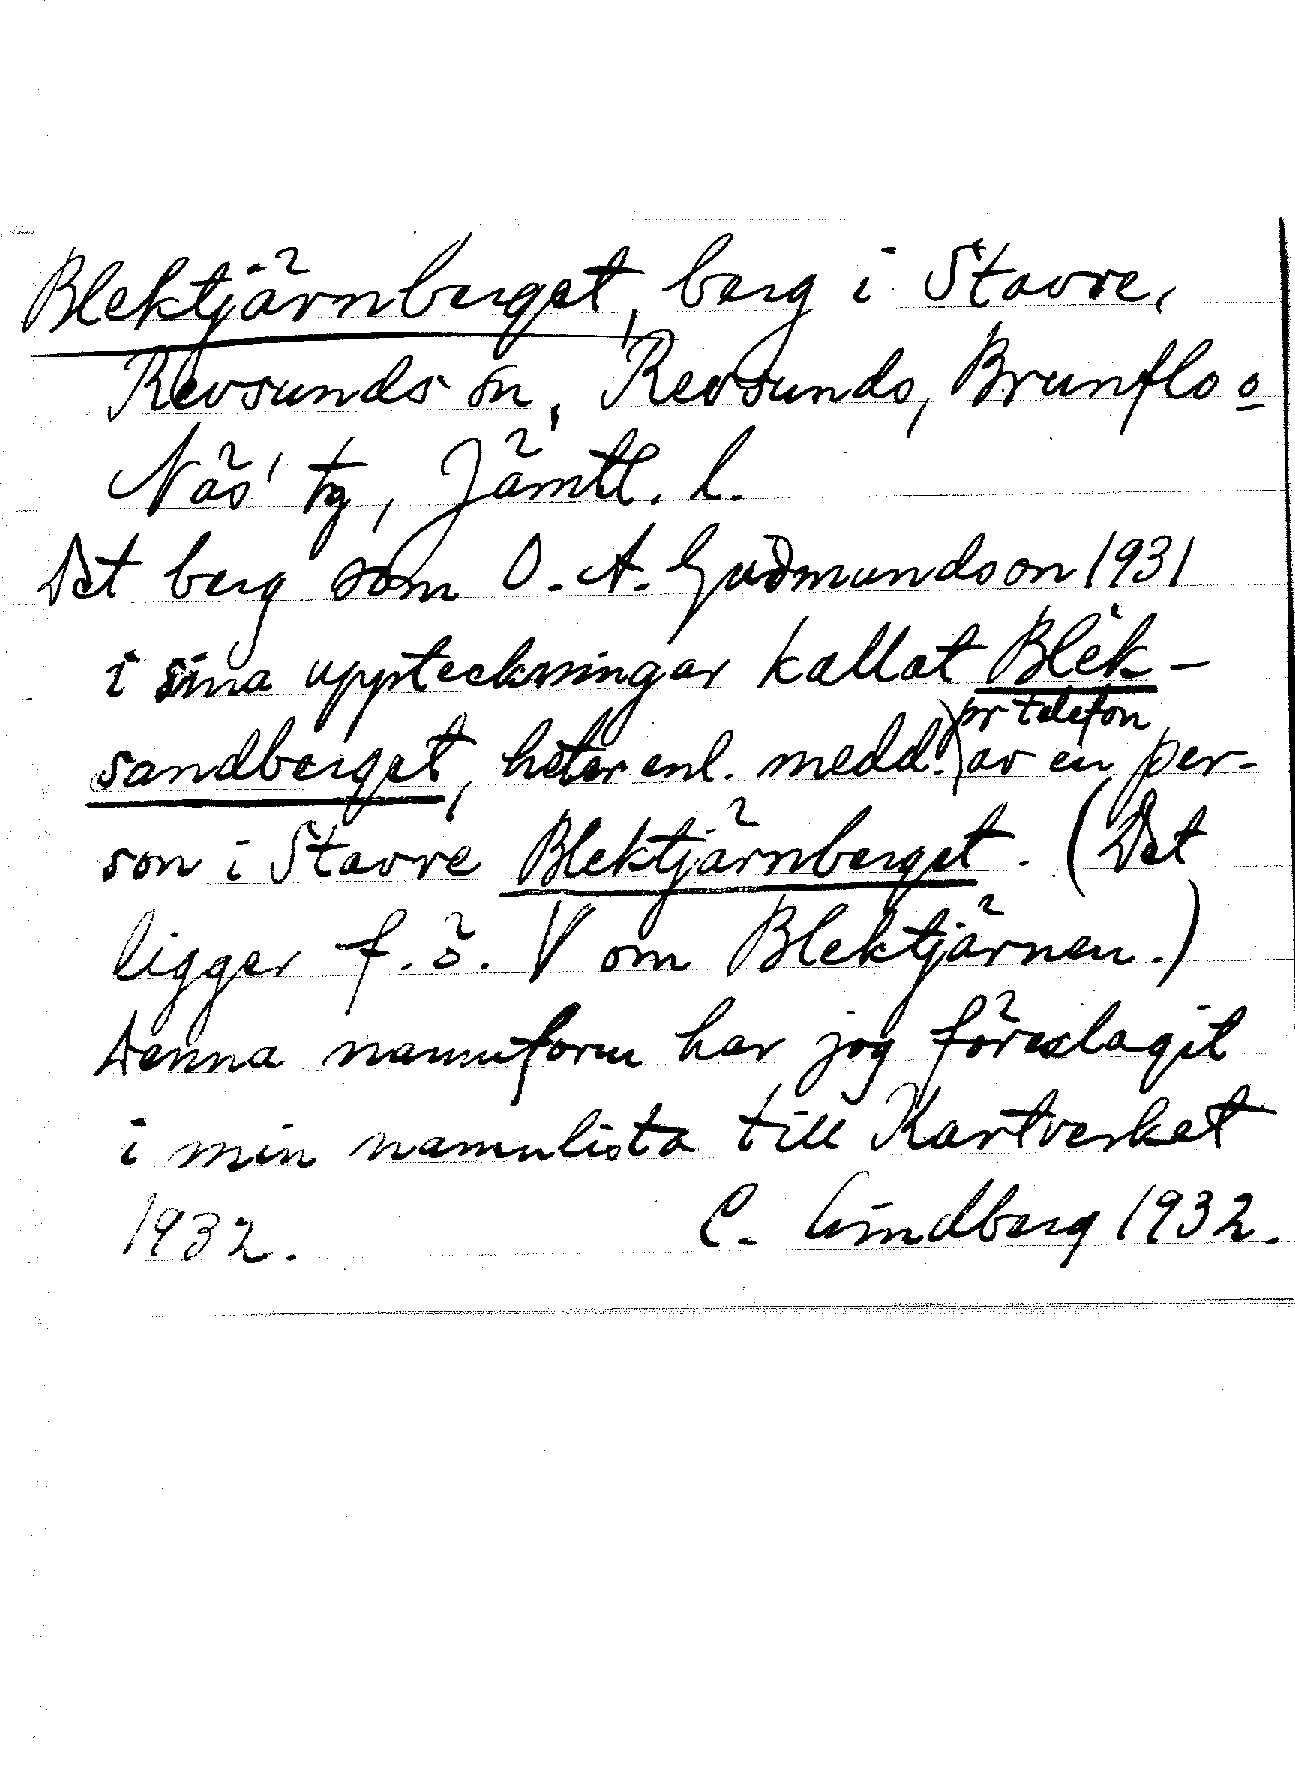 Blektjärnberget, berg i Stavre,
Revsunds sn, Revsunds, Brunflo o
Näs' tg, Jämtl. l.
Det berg som O. A. Gudmundson 1931
i sina uppteckningar kallat Blek-
sandberget, heter enl. medd. pr telefon av en per-
son i Stavre Blektjärnberget. (Det
ligger f. ö. V om Blektjärnen.)
Denna namnform har jag föreslagit
i min namnlista till Kartverket
1932. C. Lindberg 1932.